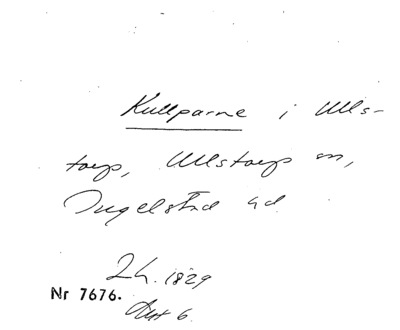 Kullparne i Ulls-
torp, Ullstorp sn,
Ingelstad hd.
Lh. 1829
Nr 7676.
Akt 6.